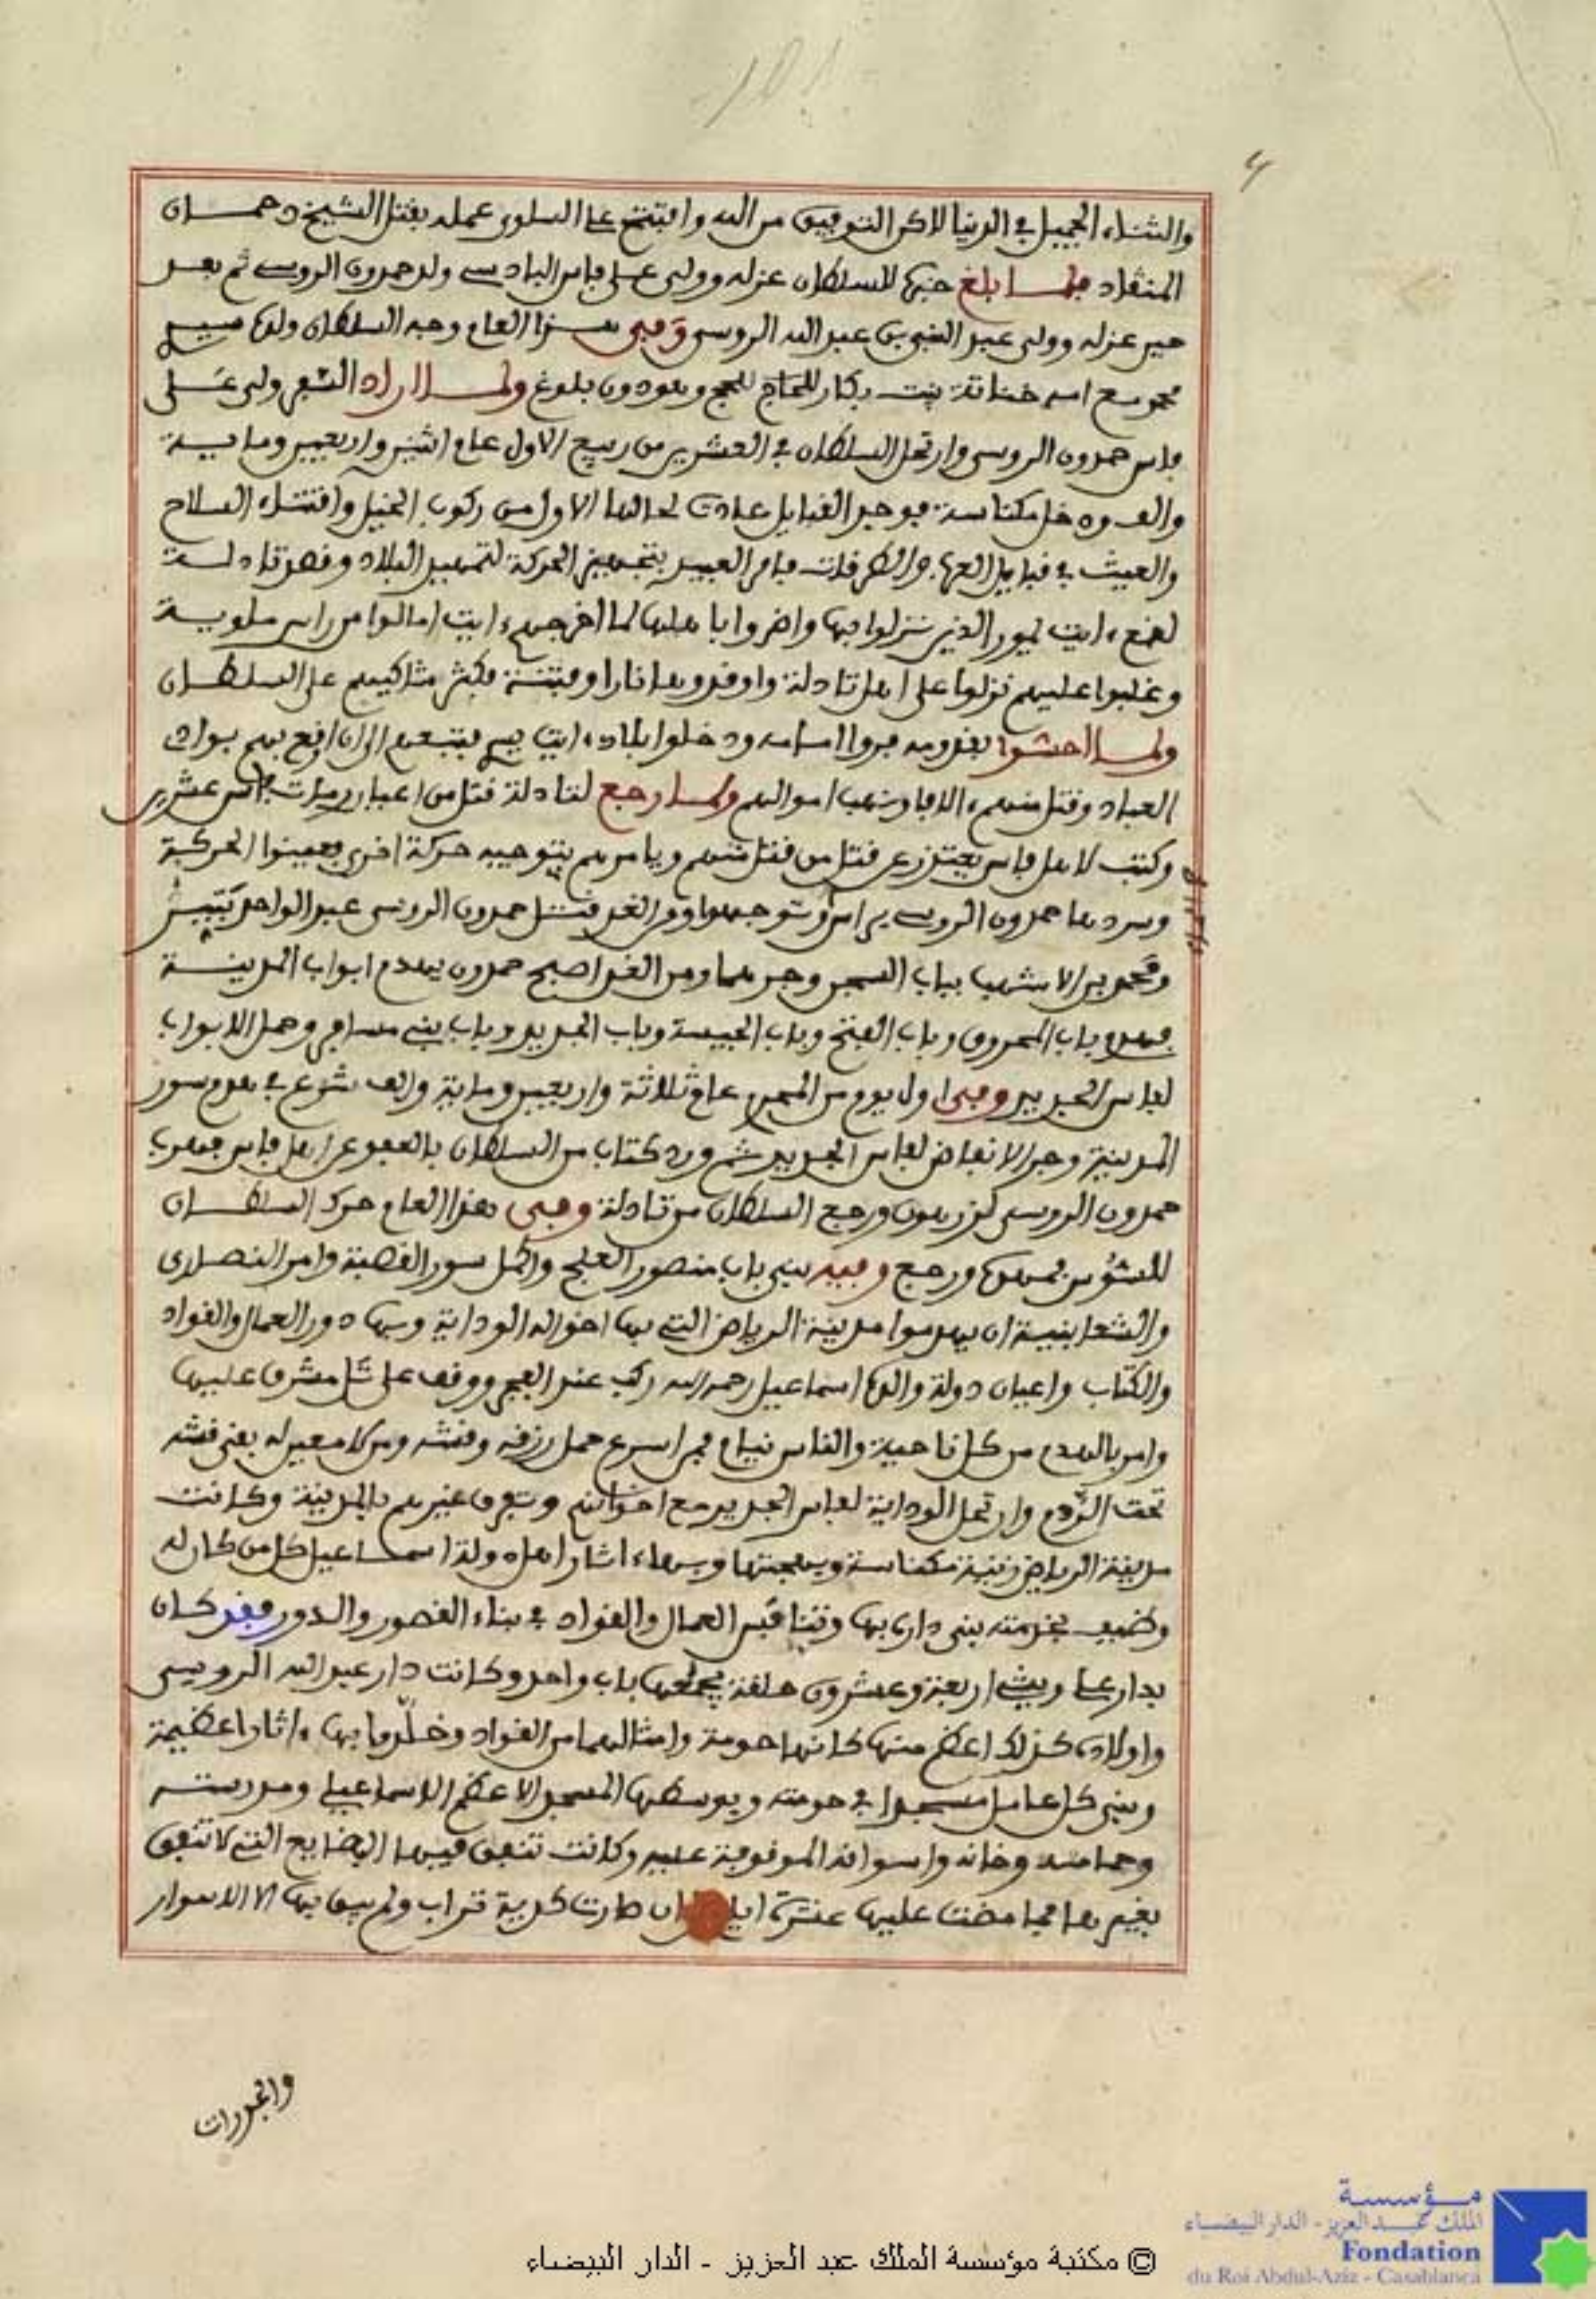 والثناء الجميل في الدنيا لاكن التوفيق من الله وافتتح على السلوي عمله بقتل الشيخ دحمان
المنقاد فلما بلغ خبرها للسلطان عزله وولى على فاس البادسي ولد حمدون الروسي ثم بعد
حين عزله وولى عبد النبي بن عبد الله الروسي وفي هذا العام وجه السلطان ولده سيدي
محمد مع امه خناتة بنت بكار للحاج للحج وهو دون بلوغ ولما اراد السفر ولى على
فاس حمدون الروسي وارتحل السلطان في العشرين من ربيع الاول عام اثنين واربعين وماية
والف ودخل مكناسة فوجد القبايل عادت لحالها الاول من ركوب الخيل واقتناء السلاح
والعيث في قبايل العرب والطرقات فامر العبيد بتجهيز الحركة لتمهيد البلاد وقصد تادلة
لقمع ايت يمور الذين نزلوا بها واضروا باهلها لما اخرجهم ايت امالوا من راس ملوية
وغلبوا عليهم نزلوا على اهل تادلة واوقدوها نارا وفتنة فكثر مشاكيهم على السلطان
ولما احسوا بقدومه فروا امامه ودخلوا بلاد ايت يسر فتبعهم الى ان اوقع بهم بوادي
العباد وقتل منهم الافا ونهب اموالهم ولما رجع لتادلة قتل من اعيان رماة فاس عشرين
وكتب لاهل فاس يعتذر عن قتل من قتل منهم ويامرهم بتوجيه حركة اخرى فعينوا الحركة
وسرد ها حمدون الروسي براس وتوجهوا ومن الغد قتل حمدون الروسي عبد الواحد تيبر
ومحمد بن الاشهب بباب السجن وجرهما ومن الغد اصبح حمدون يهدم ابواب المدينة
فهدم باب المحروق وباب الفتح وباب الجيسة وباب الجديد وباب بني مسافر وحمل الابواب
لفاس الجديد وفي اول يوم من المحرم عام ثلاثة واربعين وماية والف شرع في هدم سور
المدينة وجر الانقاض لفاس الجديد ثم ورد كتاب من السلطان بالعفو عن اهل فاس فهرب
حمدون الروسي لزرهون ورجع السلطان من تادلة وفي هذا العام حرك السلطان
للسوس فمهدها ورجع وفيه بنى باب منصور العلج واكمل سور القصبة وامر النصارى
والشعابنية ان يهدموا مدينة الرياض التي بها اخواله الوداية وبها دور العمال والقواد
والكتاب واعيان دولة والده اسماعيل رحمه الله ركب عند الفجر ووقف على تل مشرف عليها
وامر بالهدم من كل ناحية والناس نيام فمن اسرع حمل رزقه وقشه ومن لا معين له بقي قشه
تحت الردم وارتحل الوداية لفاس الجديد مع اخوانهم وتفرق غيرهم بالمدينة وكانت
مدينة الرياض زينة مكناسة وبهجتها وبها اثار اهل دولة اسماعيل كل من كان له
وظيف بخدمته بنى داره بها وتنافس العمال والقواد في بناء القصور والدور فقد كان
بدار علي ويشي اربعة وعشرون حلقة يجمعها باب واحد وكانت دار عبد الله الرويسي
واولاده كذلك اعظم منها كانها حومة وامثالهما من القواد وخلدوا بها اثارا عظيمة
وبنى كل عامل مسجدا في حومته وبوسطها المسجد الاعظم الاسماعيلي ومدرسته
وحمامه وخانه واسواقه الموقوفة عليه وكانت تنفق فيها البضايع التي لا تنفق
بغيرها فما مضت عليها عشرة ايام الا ان صارت كدية تراب ولم يبق بها الا الاسوار
والجدرات
مؤسسة
الملك عبد العزيز - الدار البيضاء
Fondation
du Roi Abdul-Aziz - Casablanca
© مكتبة مؤسسة الملك عبد العزيز - الدار البيضاء